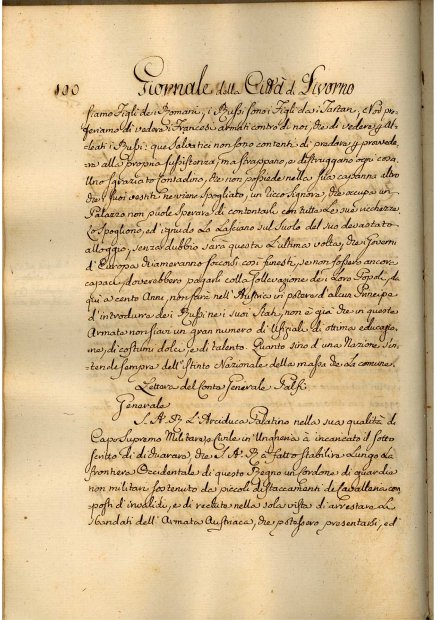 100 Giornale della Città di Livorno
siamo Figli dei Romani, i Russi sono i Figli da i Tartari, e Noi pre-
feriamo di vedere i Francesi armati contro di noi, che di vedere gl'Al-
leati Russi: que Selvatici non sono contenti di predare, e provvede-
re alla propria sussistenza, ma strappano, e distruggano ogni cosa.
Uno sgraziato Contadino, che non possiede nella sua capanna altro
che i suoi vestiti ne viene spogliato, un Ricco Signore, che occupa un
Palazzo non puole sperare di contentarli con tutte le sue ricchezze
Lo spogliono, ed ignudo lo lasciano sul suolo del suo devastato
alloggio, senza dubbio sarà questa l'ultima volta, che i Governi
d'Europa chiameranno soccorsi così funesti, se non fossero ancora
capaci, doverebbero pagarli colla sollevazione dei loro Popoli, da
qui a cento Anni, non sarà nell'Austria in potere d'alcun Principe
d'introdurre dei Russi ne i suoi Stati, non è già che in queste
Armate non sian un gran numero di Ufiziali di ottima educazio-
ne, di costumi dolci, e di talento. Quanto si no d'una Nazione s'in-
tende sempre dell'Istinto Nazionale della massa che la comune.
Lettera del Conte Generale Palfi
Generale
S. A. R. L'Arciduca Palatino nella sua qualità di
Capo Supremo Militare, e Civile in Ungheria à incaricato il sotto
scritto di dichiarare, che S. A. R. à fatto stabilire Lungo la
Frontiera Occidentale di questo Regno un Cordone di guardie
non militari sostenuto da piccoli distaccamenti di Cavalleria com-
posti d'invalidi, e di reclute nella sola vista di arrestare li
sbandati dell'Armata Austriaca, che potessero presentarsi, ed